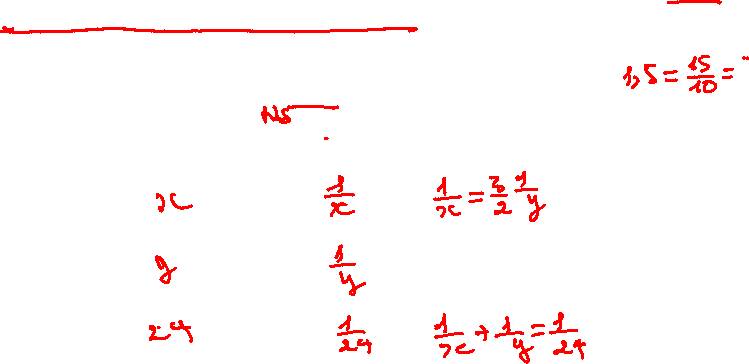 1,5 = 15/10 =
NS
x 1/x 1/x = 3/2 1/y
y 1/y
24 1/24 1/x + 1/y = 1/24